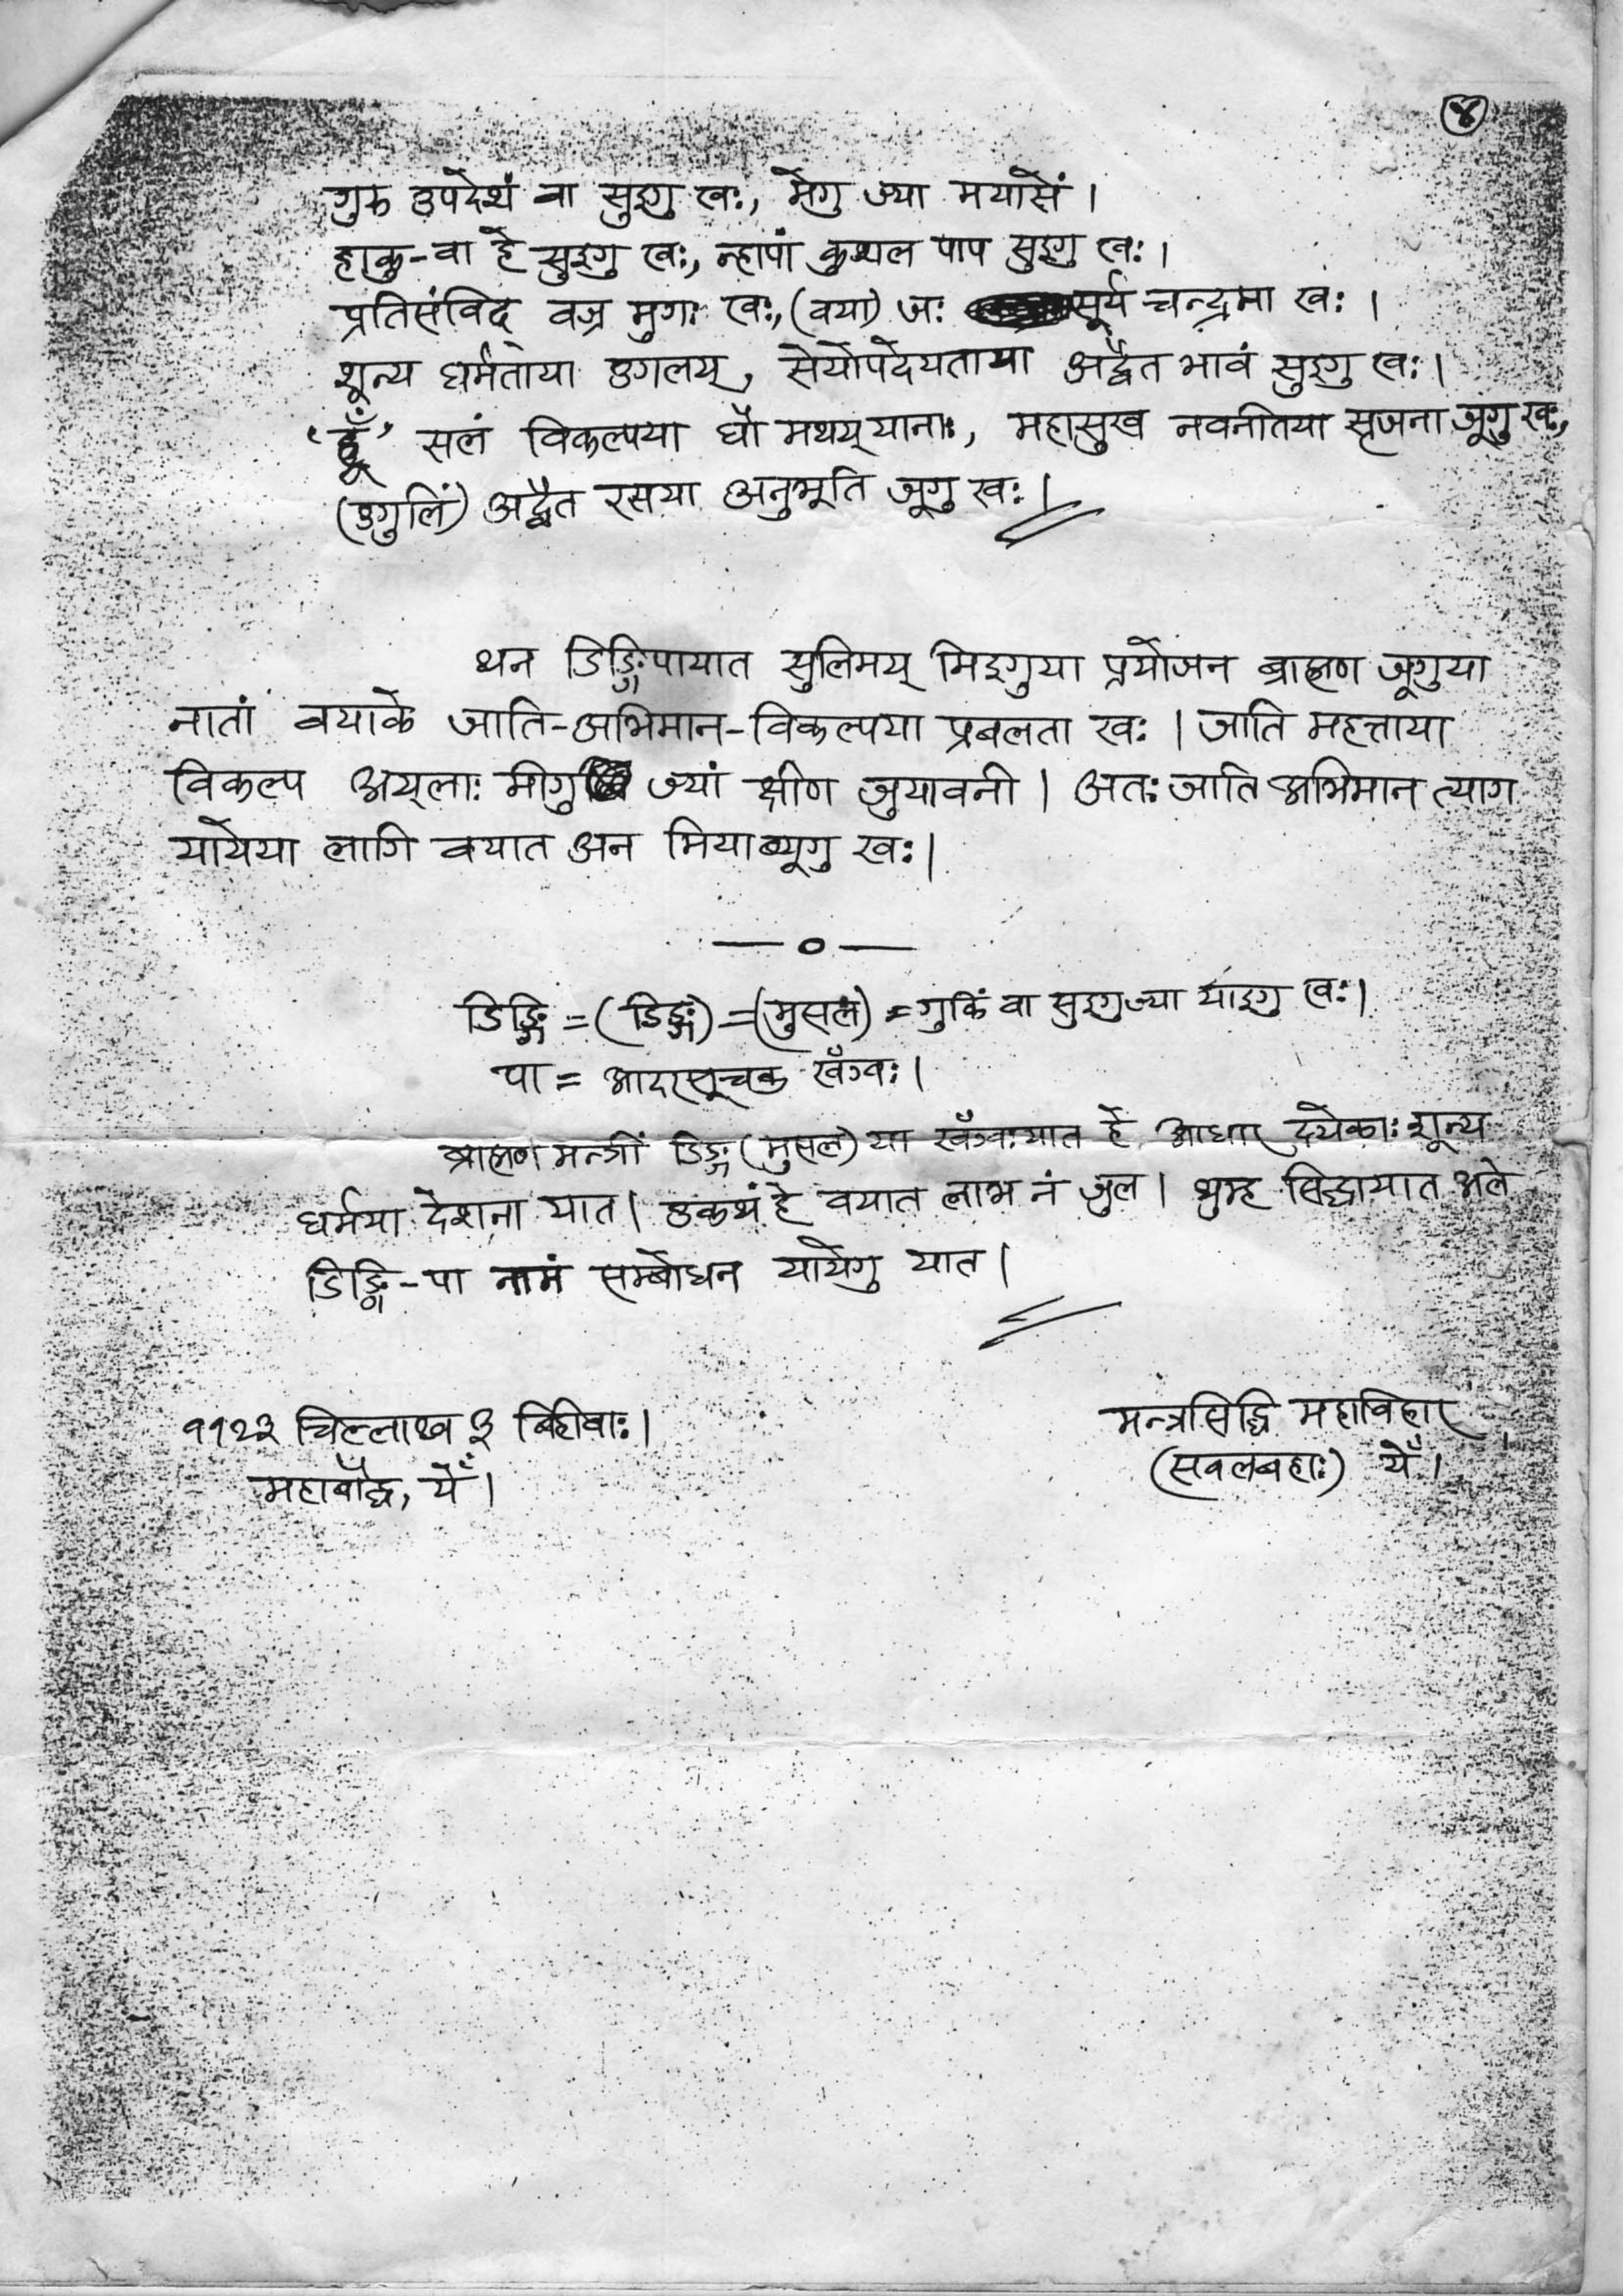 ४
गुरु उपदेशं वा सुइगु खः, मेगु ज्या मयासें ।
हाकु-वा हे सुइगु खः, न्हापां कुशल पाप सुइगु खः ।
प्रतिसंविद् वज्र मुगः खः, (वया) जः सूर्य चन्द्रमा खः ।
शून्य धर्मताया उगलय्, सेयोपदेयताया अद्वैत भावं सुइगु खः ।
'हूँ' सलं विकल्पया धौ मथय् यानाः, महासुख नवनीतया सृजना जूगु खः,
(उगुलिं) अद्वैत रसया अनुभूति जूगु खः ।
थन डिङ्गिपायात सुलिमय् मिइगुया प्रयोजन ब्राह्मण जूगुया
नातां वयाके जाति-अभिमान-विकल्पया प्रबलता खः । जाति महत्ताया
विकल्प अय्‌लाः मीगु ज्यां क्षीण जुयावनी । अतः जाति अभिमान त्याग
यायेया लागि वयात अन मियाब्यूगु खः ।
— ० —
डिङ्गि = (डिङ्गं) = (मुसलं) = गुकिं वा सुइगु ज्या याइगु खः ।
पा = आदरसूचक खँग्वः ।
ब्राह्मण मन्त्रीं डिङ्ग (मुसल) या खँग्वःयात हे आधार दयेकाः शून्य
धर्मया देशना यात । उकथं हे वयात लाभ नं जुल । थुम्ह सिद्धायात अले
डिङ्गि-पा नामं सम्बोधन यायेगु यात ।
११२३ चिल्लाथ्व ३ बिहीवाः ।
महाबौद्ध, येँ ।
मन्त्रसिद्धि महाविहार
(सवलबहाः) येँ ।